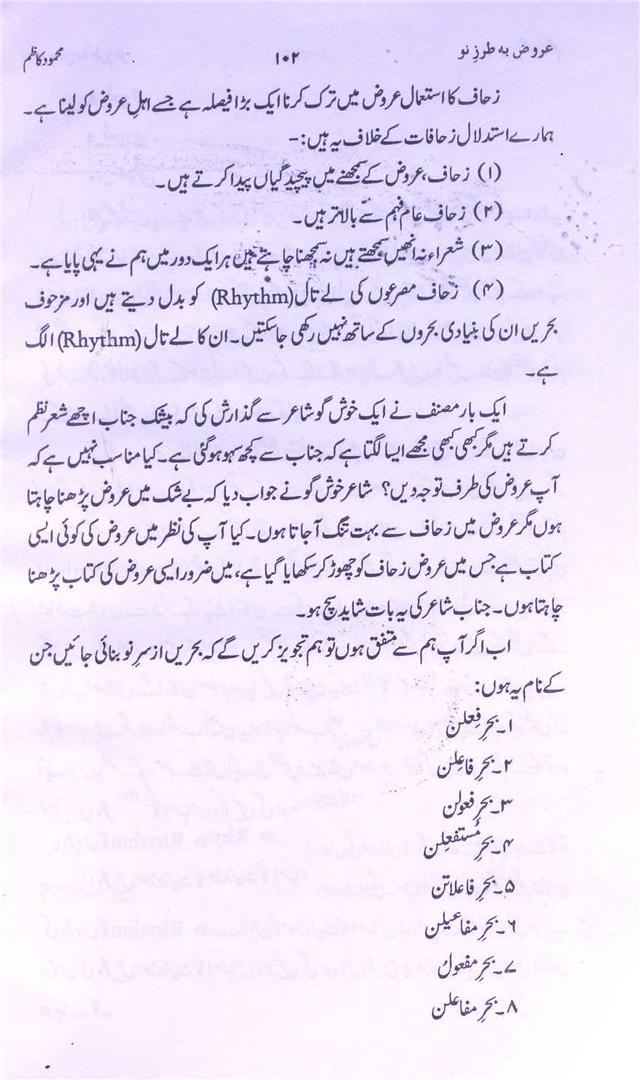 عروض بہ طرزِ نو ۱۰۲ محمود کاظم
زحاف کا استعمال عروض میں ترک کرنا ایک بڑا فیصلہ ہے جسے اہلِ عروض کو لینا ہے۔
ہمارے استدلال زحافات کے خلاف یہ ہیں:-
(۱) زحاف، عروض کے سمجھنے میں پیچیدگیاں پیدا کرتے ہیں۔
(۲) زحاف عام فہم سے بالاتر ہیں۔
(۳) شعراء نہ انھیں سمجھتے ہیں نہ سمجھنا چاہتے ہیں ہر ایک دور میں ہم نے یہی پایا ہے۔
(۴) زحاف مصرعوں کی لے تال (Rhythm) کو بدل دیتے ہیں اور مزحوف
بحریں ان کی بنیادی بحروں کے ساتھ نہیں رکھی جا سکتیں۔ ان کا لے تال (Rhythm) الگ
ہے۔
ایک بار مصنف نے ایک خوش گو شاعر سے گذارش کی کہ بیشک جناب اچھے شعر نظم
کرتے ہیں مگر کبھی کبھی مجھے ایسا لگتا ہے کہ جناب سے کچھ سہو ہو گئی ہے۔ کیا مناسب نہیں ہے کہ
آپ عروض کی طرف توجہ دیں؟ شاعر خوش گو نے جواب دیا کہ بے شک میں عروض پڑھنا چاہتا
ہوں مگر عروض میں زحاف سے بہت تنگ آ جاتا ہوں۔ کیا آپ کی نظر میں عروض کی کوئی ایسی
کتاب ہے جس میں عروض زحاف کو چھوڑ کر سکھایا گیا ہے، میں ضرور ایسی عروض کی کتاب پڑھنا
چاہتا ہوں۔ جناب شاعر کی یہ بات شاید سچ ہو۔
اب اگر آپ ہم سے متفق ہوں تو ہم تجویز کریں گے کہ بحریں از سرِ نو بنائی جائیں جن
کے نام یہ ہوں:
۱۔ بحرِ فعلن
۲۔ بحرِ فاعلن
۳۔ بحرِ فعولن
۴۔ بحرِ مُستفعِلن
۵۔ بحرِ فاعلاتن
۶۔ بحرِ مفاعیلن
۷۔ بحرِ مفعولُ
۸۔ بحرِ مفاعلن